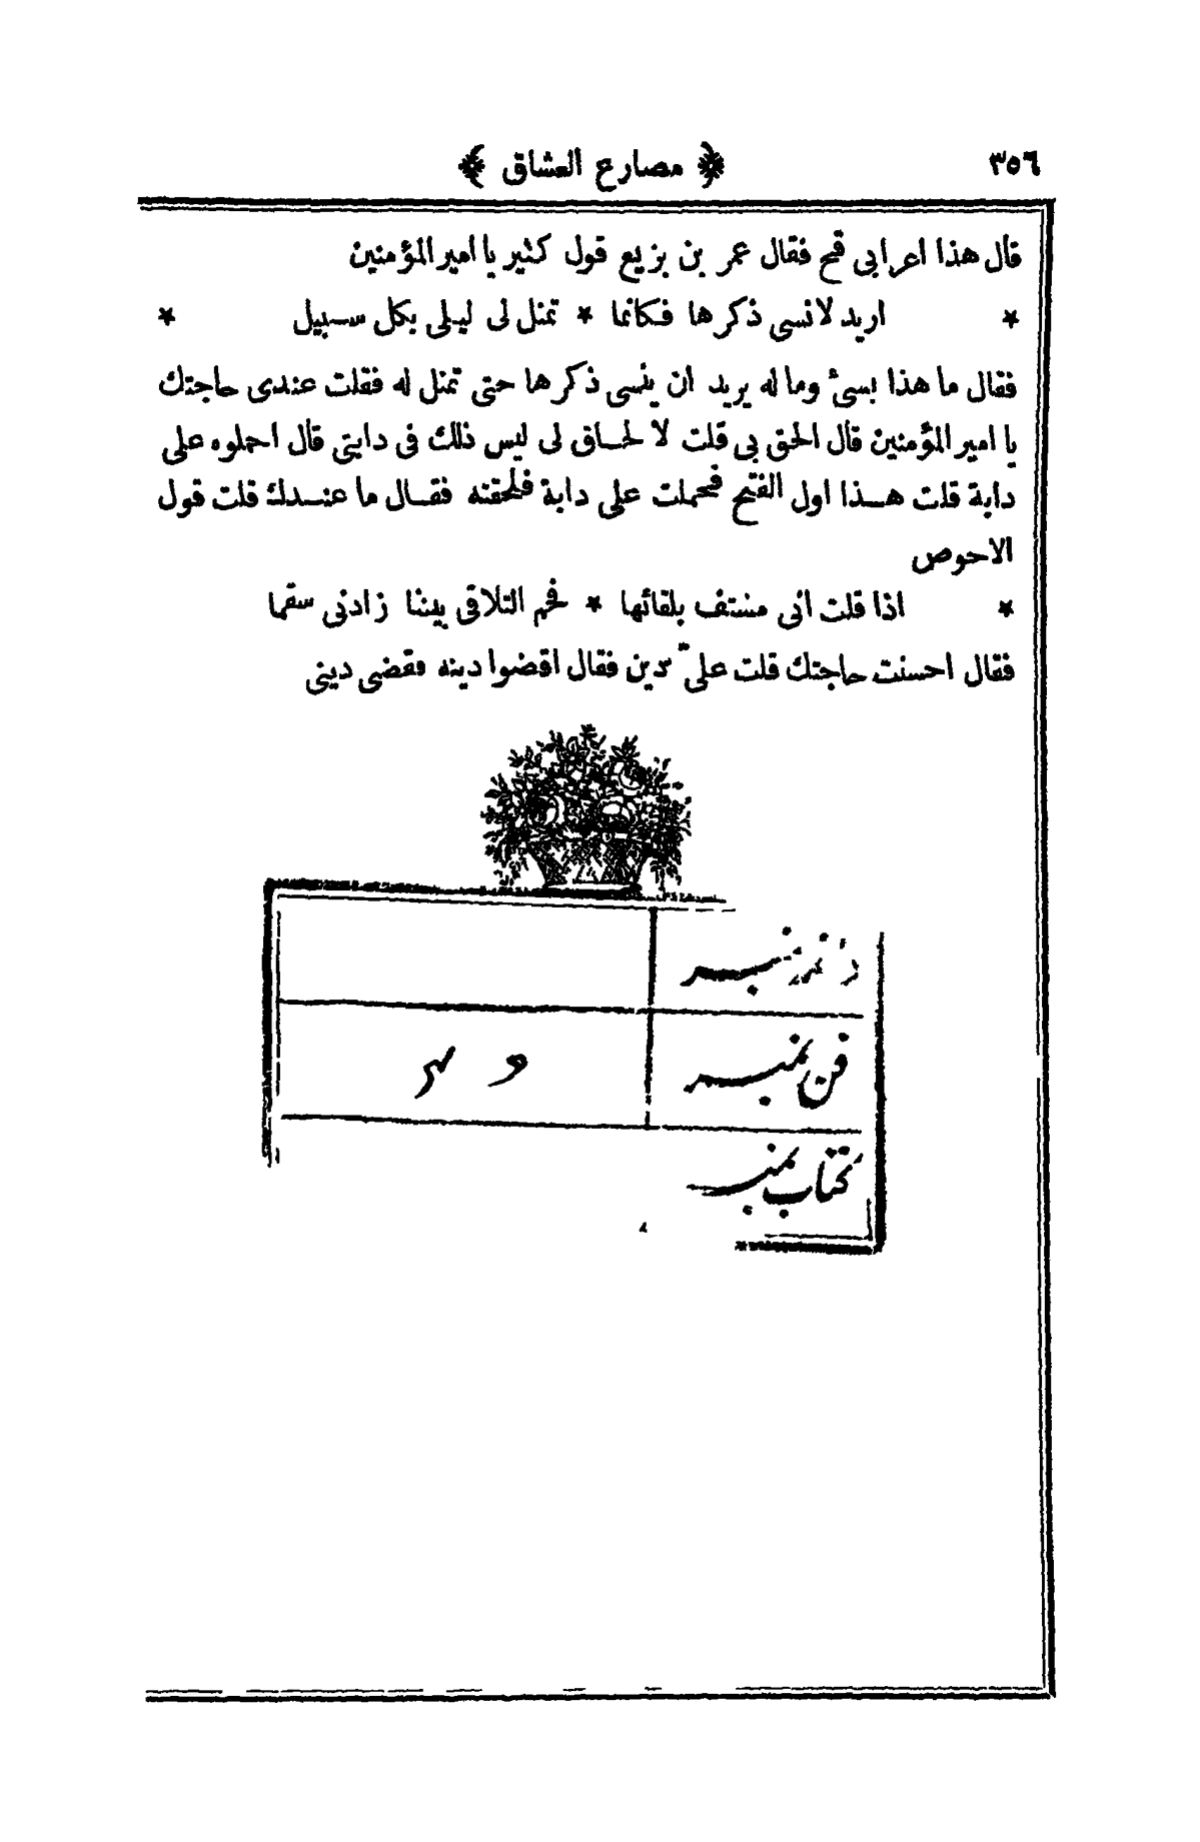 ٣٥٦ ﴿ مصارع العشاق ﴾
قال هذا اعرابى قح فقال عمر بن بزيع قول كثير يا امير المؤمنين
* اريد لانسى ذكرها فكانما * تمثل لى ليلى بكل سبيل *
فقال ما هذا بسئ وما له يريد ان ينسى ذكرها حتى تمثل له فقلت عندى حاجتك
يا امير المؤمنين قال الحق بى قلت لا لحاق لى ليس ذلك فى دابتى قال احملوه على
دابة قلت هذا اول الفتح فحملت على دابة فلحقته فقال ما عندك قلت قول
الاحوص
* اذا قلت انى مشتف بلقائها * فحم التلاقى بيننا زادنى سقما
فقال احسنت حاجتك قلت علىّ دين فقال اقضوا دينه فقضى دينى
نمبر
فن نمبر
كتاب نمبر